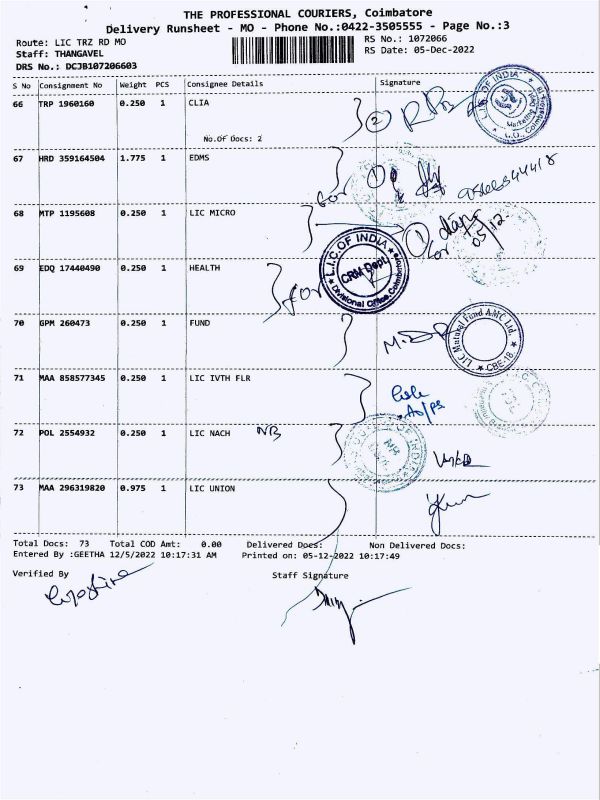 THE PROFESSIONAL COURIERS, Coimbatore
Delivery Runsheet - MO - Phone No.:0422-3505555 - Page No.:3
Route: LIC TRZ RD MO
RS No.: 1072066
Staff: THANGAVEL
RS Date: 05-Dec-2022
DRS No.: DCJB107206603
S No Consignment No Weight PCS Consignee Details Signature
66 TRP 1960160 0.250 1 CLIA
No.Of Docs: 2
2
L.I.C. OF INDIA
Marketing Dept
D.O., Coimbatore-18
67 HRD 359164504 1.775 1 EDMS
for
68 MTP 1195608 0.250 1 LIC MICRO
1
for
05/12
69 EDQ 17440490 0.250 1 HEALTH
for
L.I.C OF INDIA
CRM Dept
Divisional Office, Coimbatore
70 GPM 260473 0.250 1 FUND
LIC Mutual Fund AMC Ltd.
CBE-18
71 MAA 858577345 0.250 1 LIC IVTH FLR
72 POL 2554932 0.250 1 LIC NACH NB
73 MAA 296319820 0.975 1 LIC UNION
Total Docs: 73 Total COD Amt: 0.00 Delivered Docs: Non Delivered Docs:
Entered By :GEETHA 12/5/2022 10:17:31 AM Printed on: 05-12-2022 10:17:49
Verified By
Staff Signature